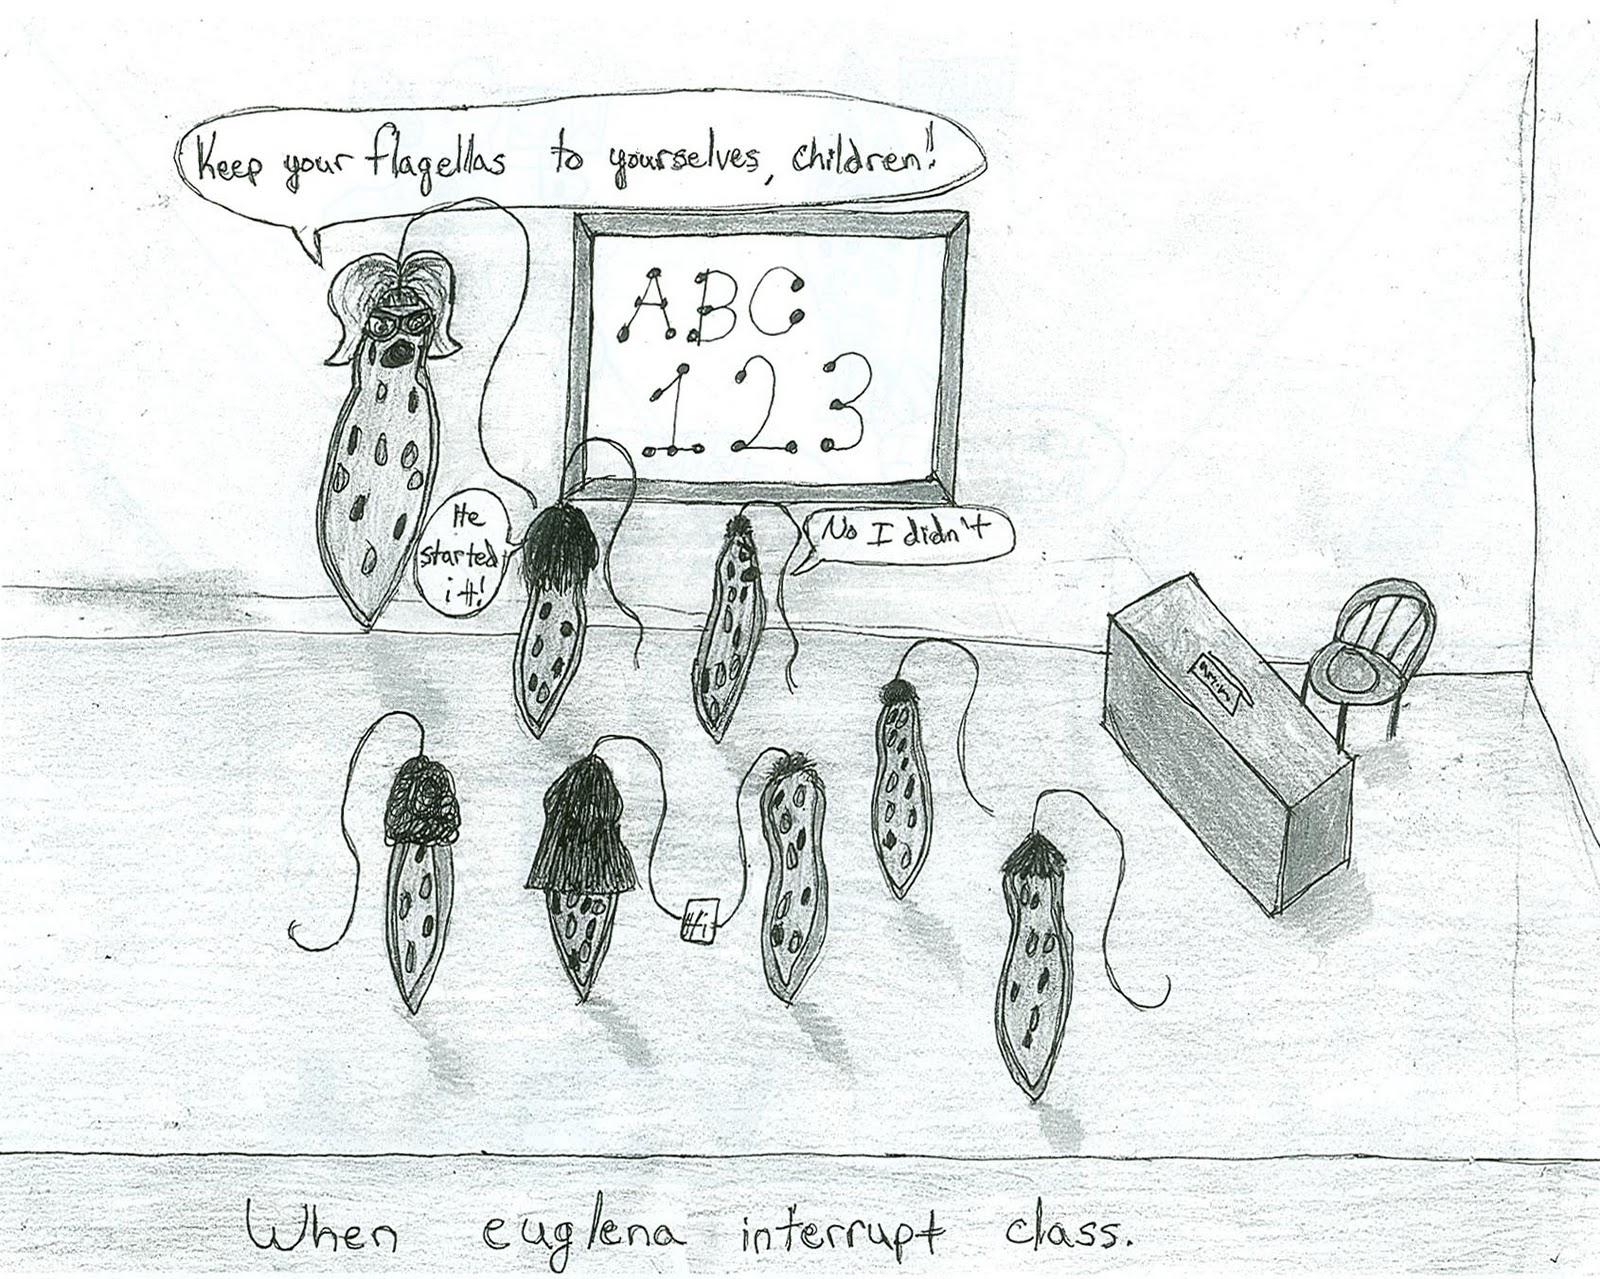 Keep your flagellas to yourselves, children!
ABC
123
He
started
it!
No I didn't
Hi
When euglena interrupt class.